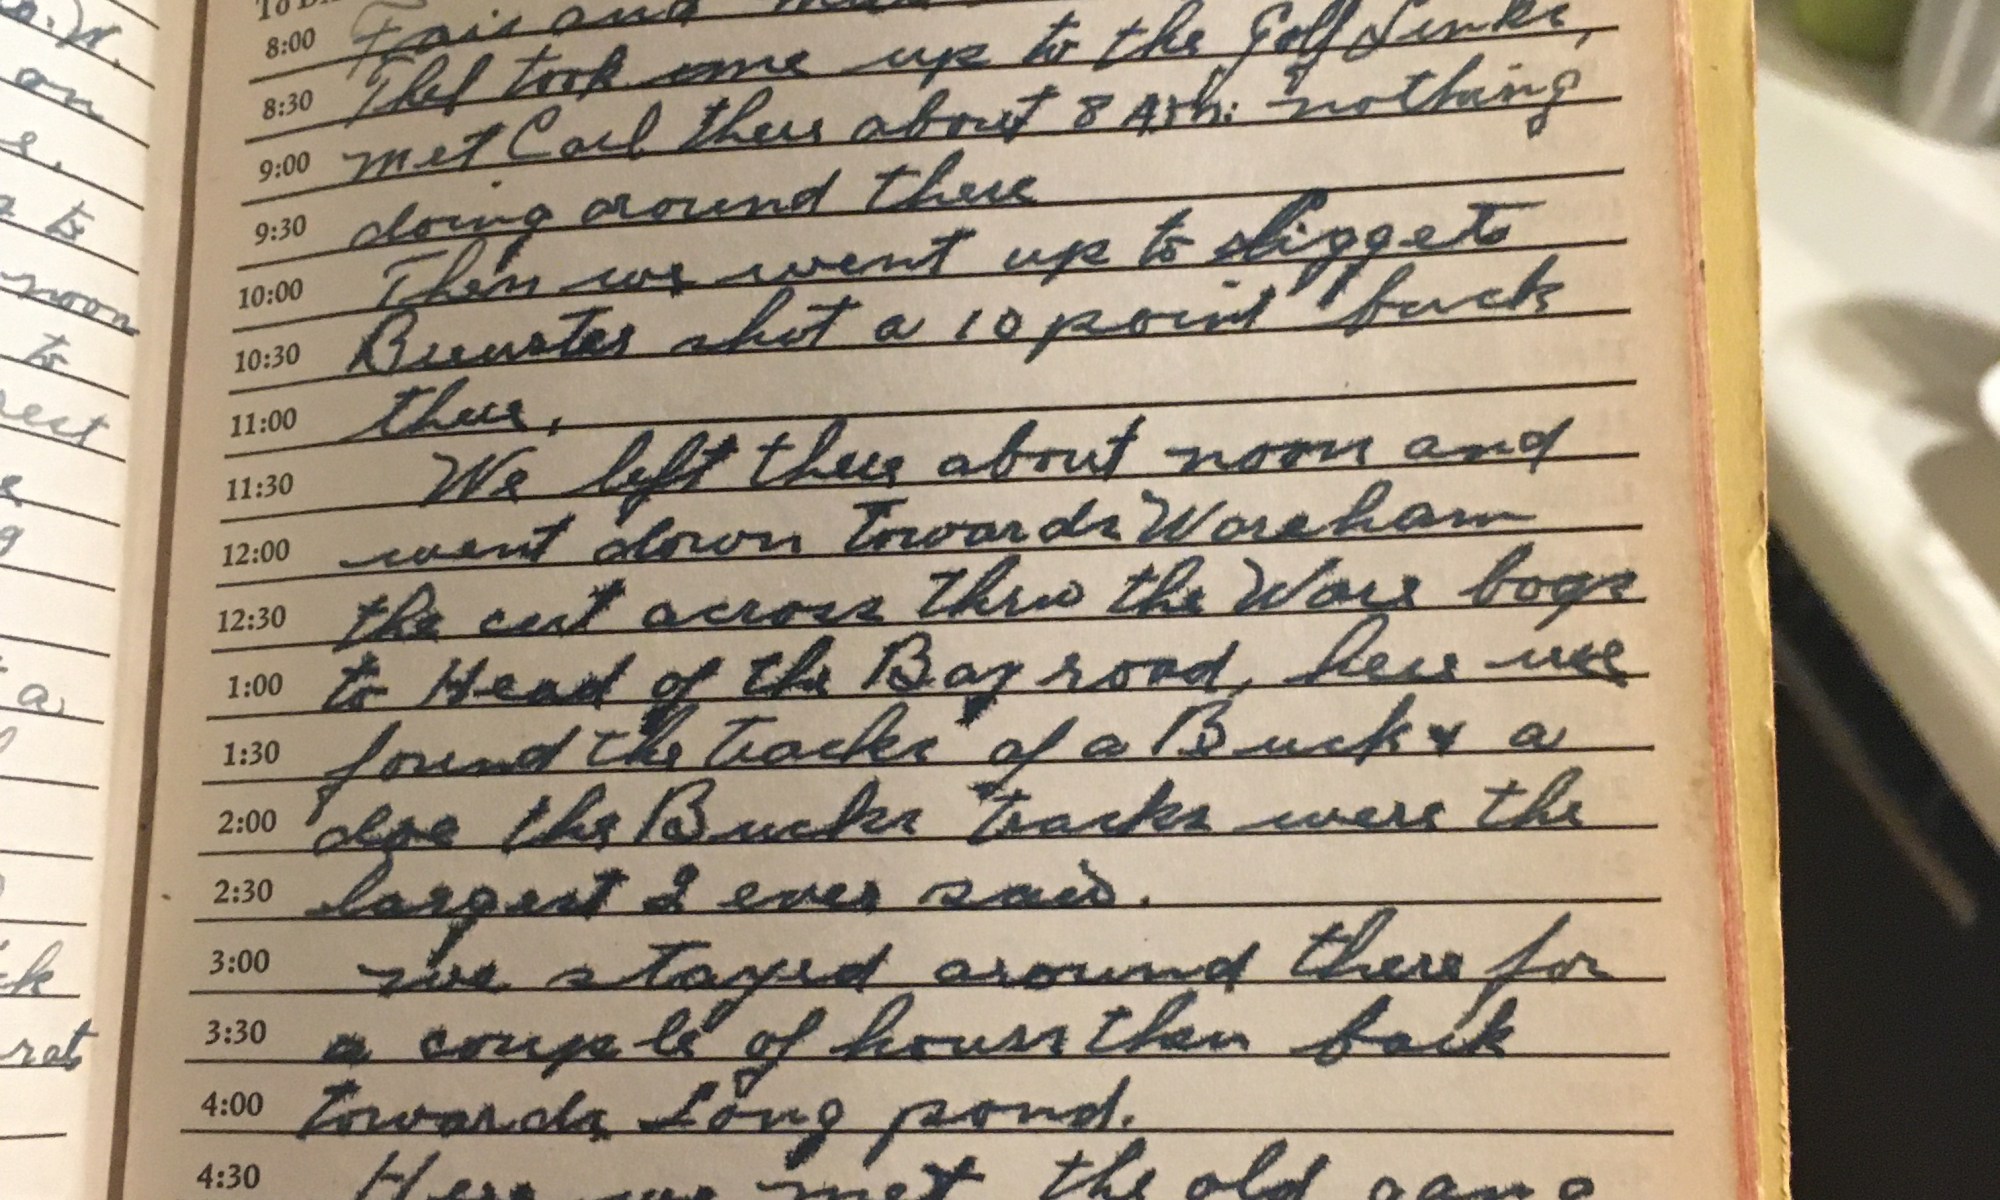 8:00 Fair and
8:30 Thel took me up to the Golf Links,
9:00 met Carl there about 8 A.M. nothing
9:30 doing around there
10:00 Then we went up to
10:30 Brewster shot a 10 point buck
11:00 there,
11:30 We left there about noon and
12:00 went down towards Wareham
12:30 the cut across thru the Ware bogs
1:00 to Head of the Bay road, here we
1:30 found the tracks of a Buck & a
2:00 doe the Bucks tracks were the
2:30 largest I ever saw.
3:00 we stayed around there for
3:30 a couple of hours then back
4:00 towards Long pond.
4:30 Here we met the old gang
on
e.
to
noon
to
rest
a